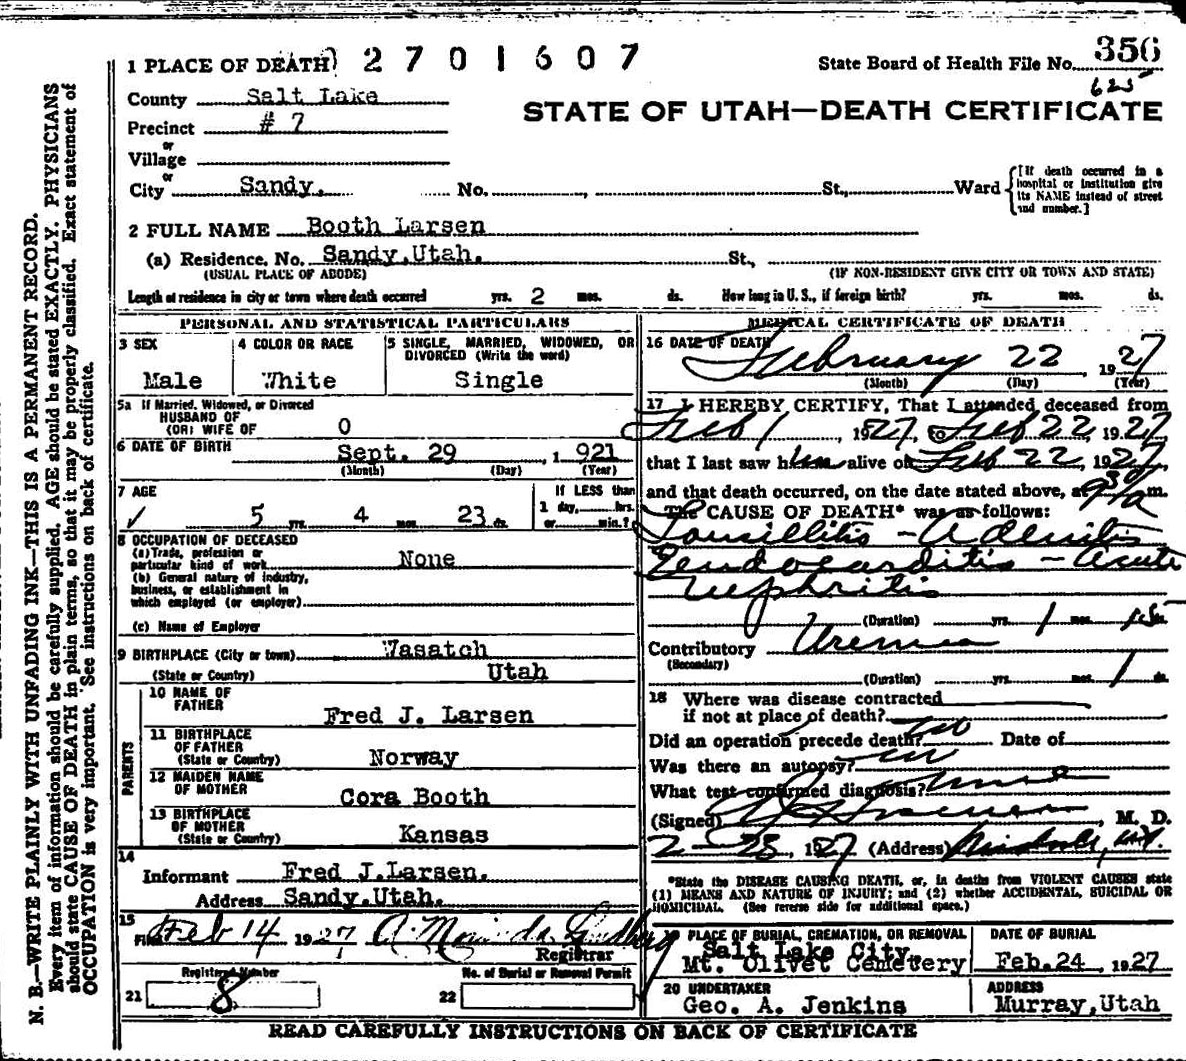 356
1 PLACE OF DEATH) 2701607 State Board of Health File No.
625
County Salt Lake
STATE OF UTAH—DEATH CERTIFICATE
Precinct # 7
or
Village
or
City Sandy. No. , St., Ward [If death occurred in a hospital or institution give its NAME instead of street and number.]
2 FULL NAME Booth Larsen
(a) Residence. No. Sandy,Utah. St.,
(USUAL PLACE OF ABODE) (IF NON-RESIDENT GIVE CITY OR TOWN AND STATE)
Length of residence in city or town where death occurred yrs. 2 mos. ds. How long in U. S., if foreign birth? yrs. mos. ds.
PERSONAL AND STATISTICAL PARTICULARS
3 SEX
Male
4 COLOR OR RACE
White
5 SINGLE, MARRIED, WIDOWED, OR
DIVORCED (Write the word)
Single
5a If Married, Widowed, or Divorced
HUSBAND OF
(OR) WIFE OF 0
6 DATE OF BIRTH Sept. 29 , 1 921
(Month) (Day) (Year)
7 AGE
5 yrs. 4 mos. 23 ds.
If LESS than
1 day, hrs.
or min.?
8 OCCUPATION OF DECEASED
(a) Trade, profession or
particular kind of work None
(b) General nature of industry,
business, or establishment in
which employed (or employer)
(c) Name of Employer
9 BIRTHPLACE (City or town) Wasatch
(State or Country) Utah
PARENTS
10 NAME OF
FATHER Fred J. Larsen
11 BIRTHPLACE
OF FATHER
(State or Country) Norway
12 MAIDEN NAME
OF MOTHER Cora Booth
13 BIRTHPLACE
OF MOTHER
(State or Country) Kansas
14
Informant Fred J.Larsen.
Address Sandy.Utah.
15
Filed Feb 14 1927
Registrar
Registered Number
21 8
No. of Burial or Removal Permit
22
MEDICAL CERTIFICATE OF DEATH
16 DATE OF DEATH
February 22 , 1927
(Month) (Day) (Year)
17 I HEREBY CERTIFY, That I attended deceased from
Feb 1 , 1927, to Feb 22, 1927
that I last saw him alive on Feb 22, 1927,
and that death occurred, on the date stated above, at 930/a m.
The CAUSE OF DEATH* was as follows:
Tonsillitis - Adenitis
Endocarditis - Acute
nephritis
(Duration) yrs. 1 mos. 15 ds.
Contributory Uremia
(Secondary)
(Duration) yrs. mos. 1 ds.
18 Where was disease contracted
if not at place of death?
Did an operation precede death? no Date of
Was there an autopsy? no
What test confirmed diagnosis?
(Signed) , M. D.
2-23, 1927 (Address) Midvale, Ut.
*State the DISEASE CAUSING DEATH, or, in deaths from VIOLENT CAUSES state
(1) MEANS AND NATURE OF INJURY; and (2) whether ACCIDENTAL, SUICIDAL OR
HOMICIDAL. (See reverse side for additional space.)
19 PLACE OF BURIAL, CREMATION, OR REMOVAL
Salt Lake City.
Mt. Olivet Cemetery
DATE OF BURIAL
Feb.24 , 1927
20 UNDERTAKER
Geo. A. Jenkins
ADDRESS
Murray,Utah
READ CAREFULLY INSTRUCTIONS ON BACK OF CERTIFICATE
N. B.—WRITE PLAINLY WITH UNFADING INK—THIS IS A PERMANENT RECORD.
Every item of information should be carefully supplied. AGE should be stated EXACTLY. PHYSICIANS
should state CAUSE OF DEATH in plain terms, so that it may be properly classified. Exact statement of
OCCUPATION is very important. See instructions on back of certificate.